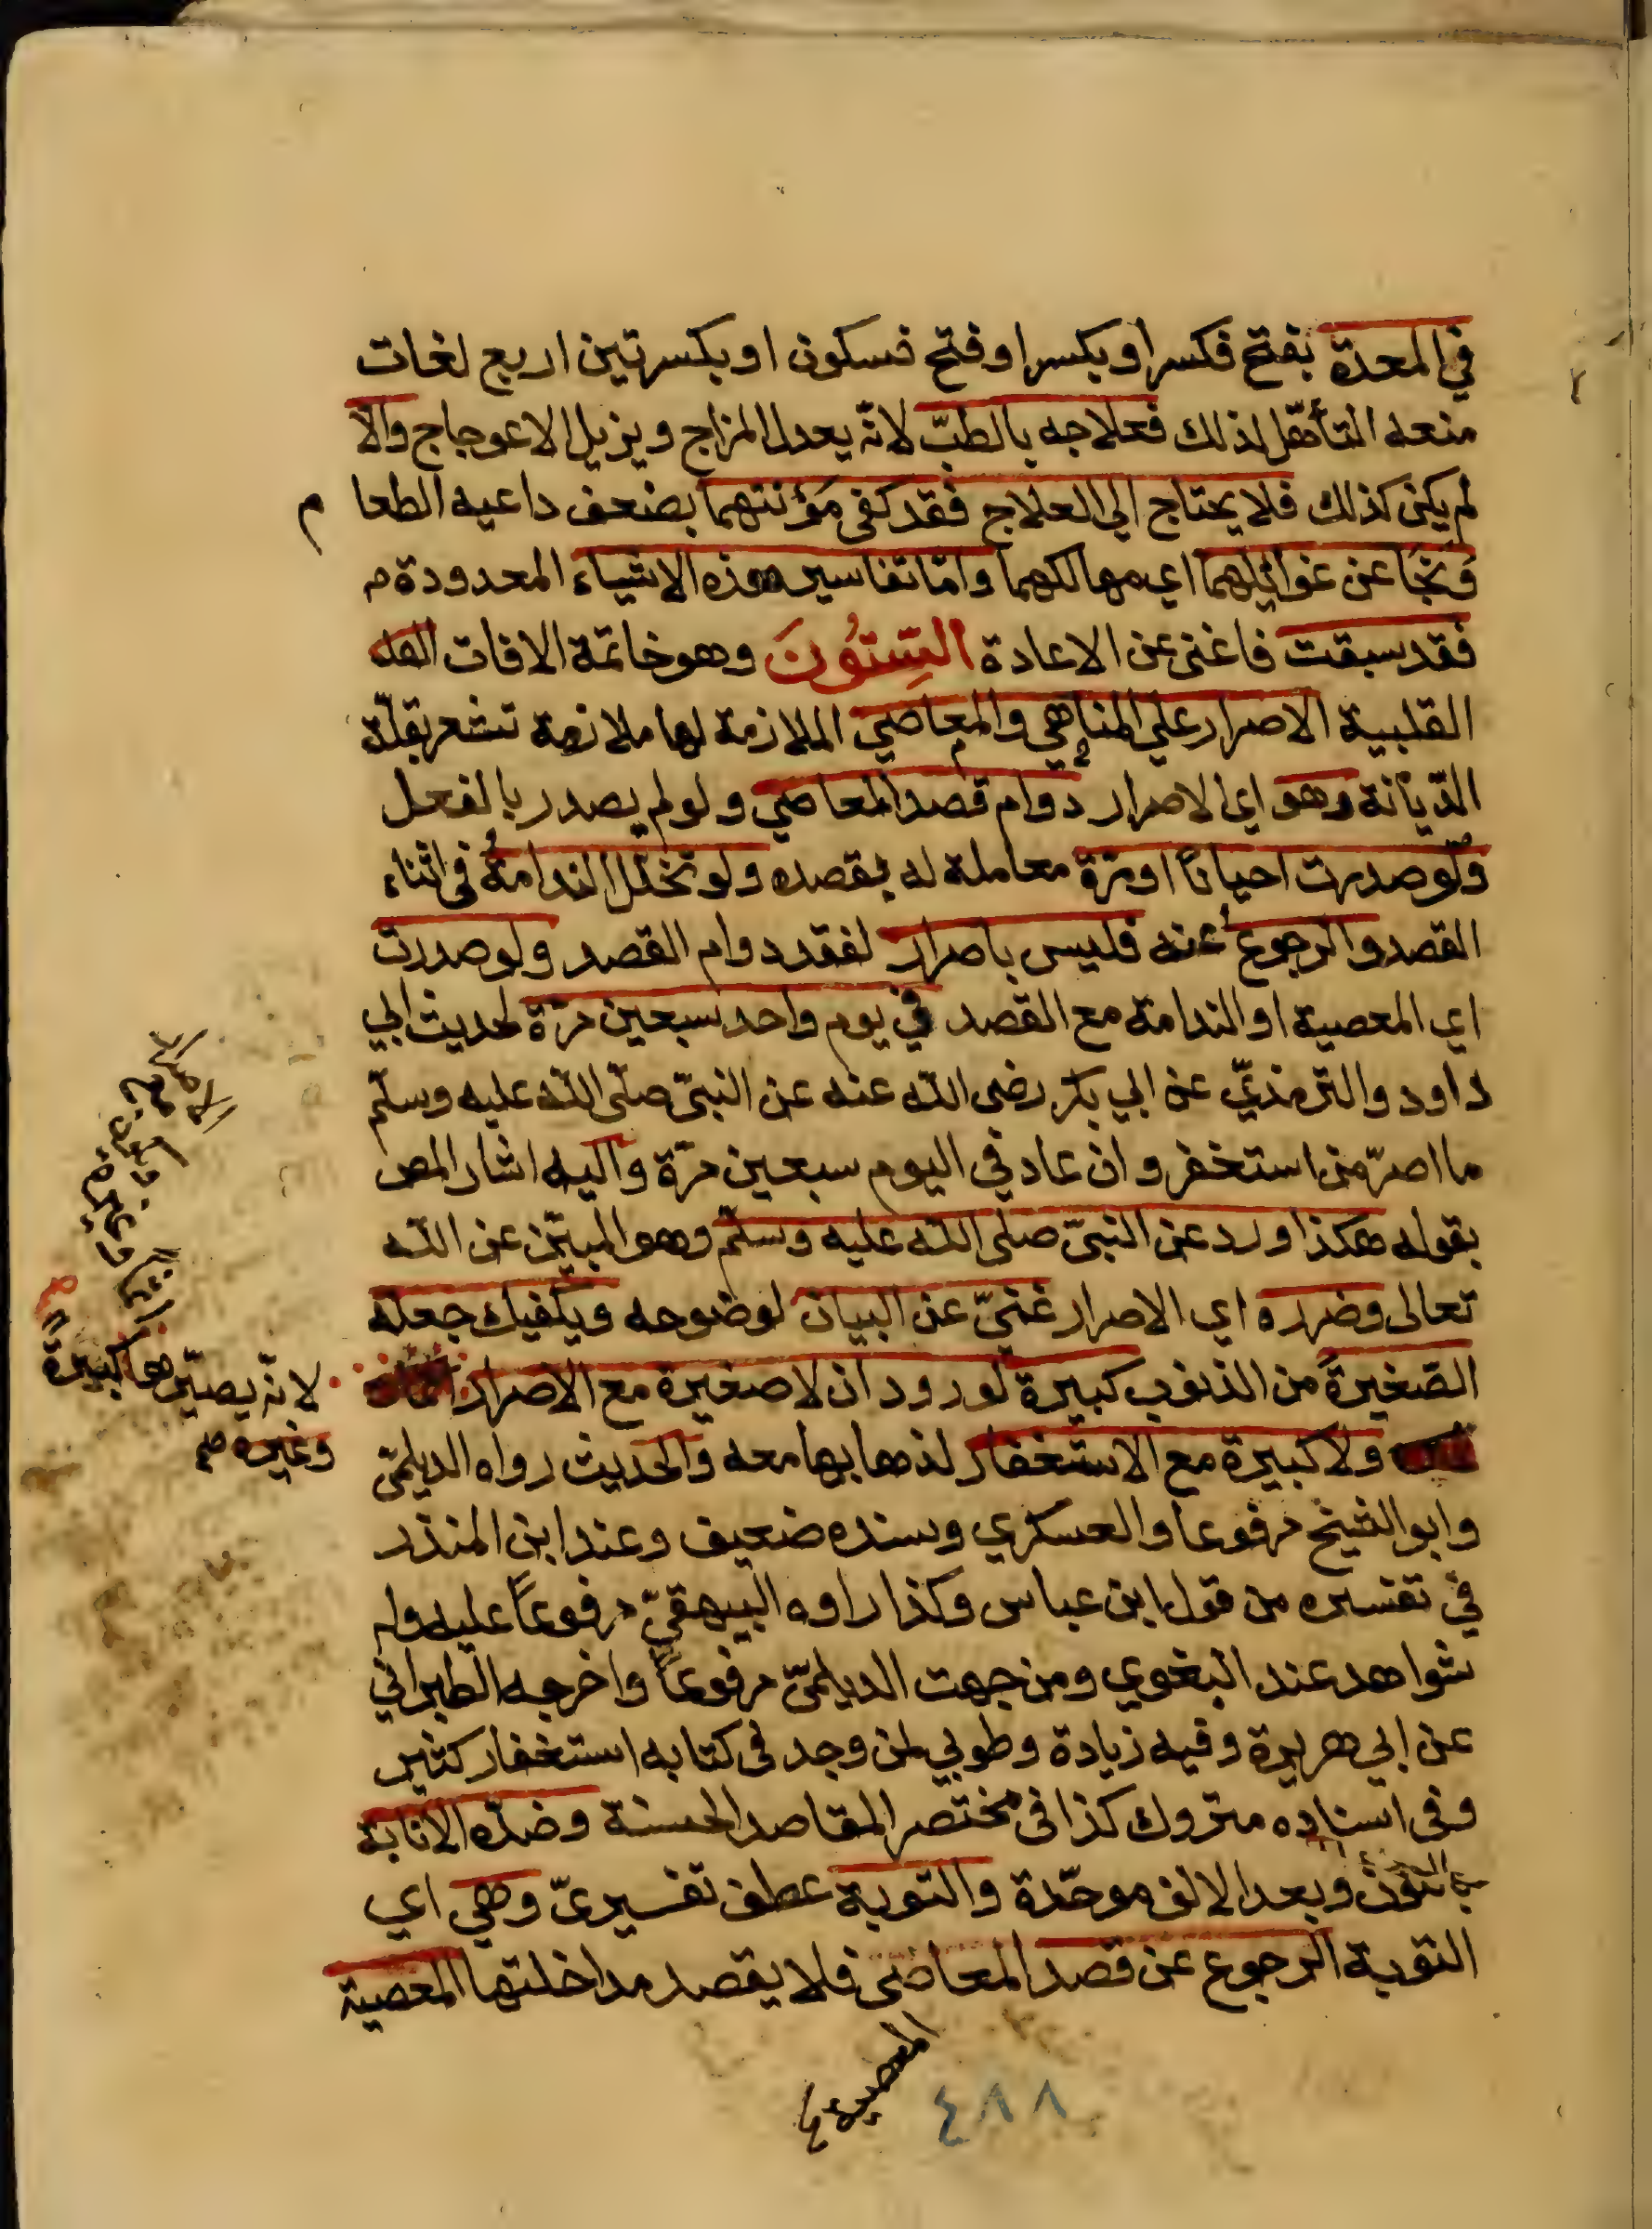 في المعدة بفتح فكسر او بكسر او فتح فسكون او بكسرتين اربع لغات
منعه التأهل لذلك فعلاجه بالطبّ لانّه يعدل المزاج ويزيل الاعوجاج والا
لم يكن كذلك فلا يحتاج الي العلاج فقد كفى مَؤنتهما بضعف داعيه الطعام
وَنجَا عن غوائلهما اي مهالكهما وامّا تفاسير هذه الاشياء المعدودة م
فقد سبقت فاغنى عن الاعادة السِّتوُنَ وهو خاتمة الافات
القلبية الاصرار علي المناهي والمعاصي الملازمة لها ملازمة تشعر بقلّة
الدّيانة وهو اي الاصرار دوام قصد المعاصي ولو لم يصدر بالفعل
ولو صدرت احيانًا او مرّة معاملة له بقصده ولو تخلل الندامةُ في اثناء
القصد والرجوع عنه فليس باصرار لفقد دوام القصد ولو صدرت
اي المعصية او الندامة مع القصد في يوم واحد سبعين مرّة لحديث ابي
داود والترمذيّ عن ابي بكر رضى اللّه عنه عن النبىّ صلّى اللّه عليه وسلّم
ما اصرّ من استغفر وان عاد في اليوم سبعين مرّة واليه اشار المص
بقوله هكذا ورد عن النبىّ صلى اللّه عليه وسلّم وهو المبيّن عن اللّه
تعالى وضرره اي الاصرار غنيّ عن البيان لوضوحه ويكفيك جعله
الصّغيرةَ من الذنوب كبيرة لورود ان لا صغيرة مع الاصرار
لانّه يصيّرها كبيرةً
ولا كبيرة مع الاستغفار لذهابها معه والحديث رواه الديلمّى
وغيره صح
وابو الشيخ مرفوعا والعسكري وسنده ضعيف وعند ابن المنذر
في تفسيره من قول ابن عباس وكذا راوه البيهقيّ مرفوعاً عليه وله
شواهد عند البغوي ومن جهت الديلمّى مرفوعاً واخرجه الطبراني
عن ابي هريرة وفيه زيادة وطوبي لمن وجد فى كتابه استغفار كثير
وفى اسناده متروك كذا فى مختصر المقاصد الحسنة وضدّه الانابة
بالنون وبعد الالف موحّدة والتوبة عطف تفسيرىّ وهي اي
التوبة الرجوع عن قصد المعاصي فلا يقصد مداخلتها المعصية
المعصية
٤٨٨